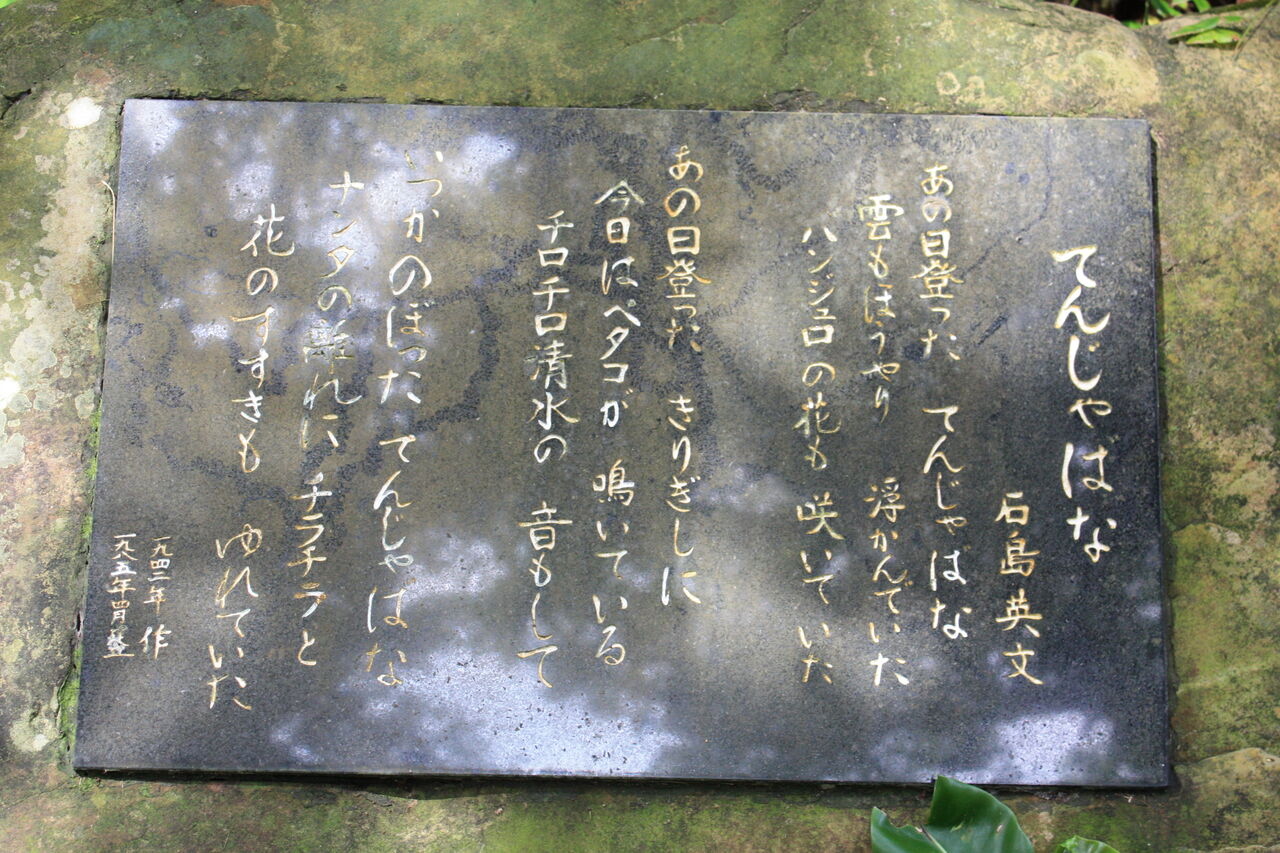 てんじゃばな
石島英文
あの日登った てんじゃばな
雲もほうやり 浮かんでいた
ハンジュロの花も 咲いていた
あの日登った きりぎしに
今日はペタコが 鳴いている
チロチロ清水の 音もして
いつかのぼった てんじゃばな
ナンタの離れに チラチラと
花のすすきも ゆれていた
一九四二年 作
一九八五年